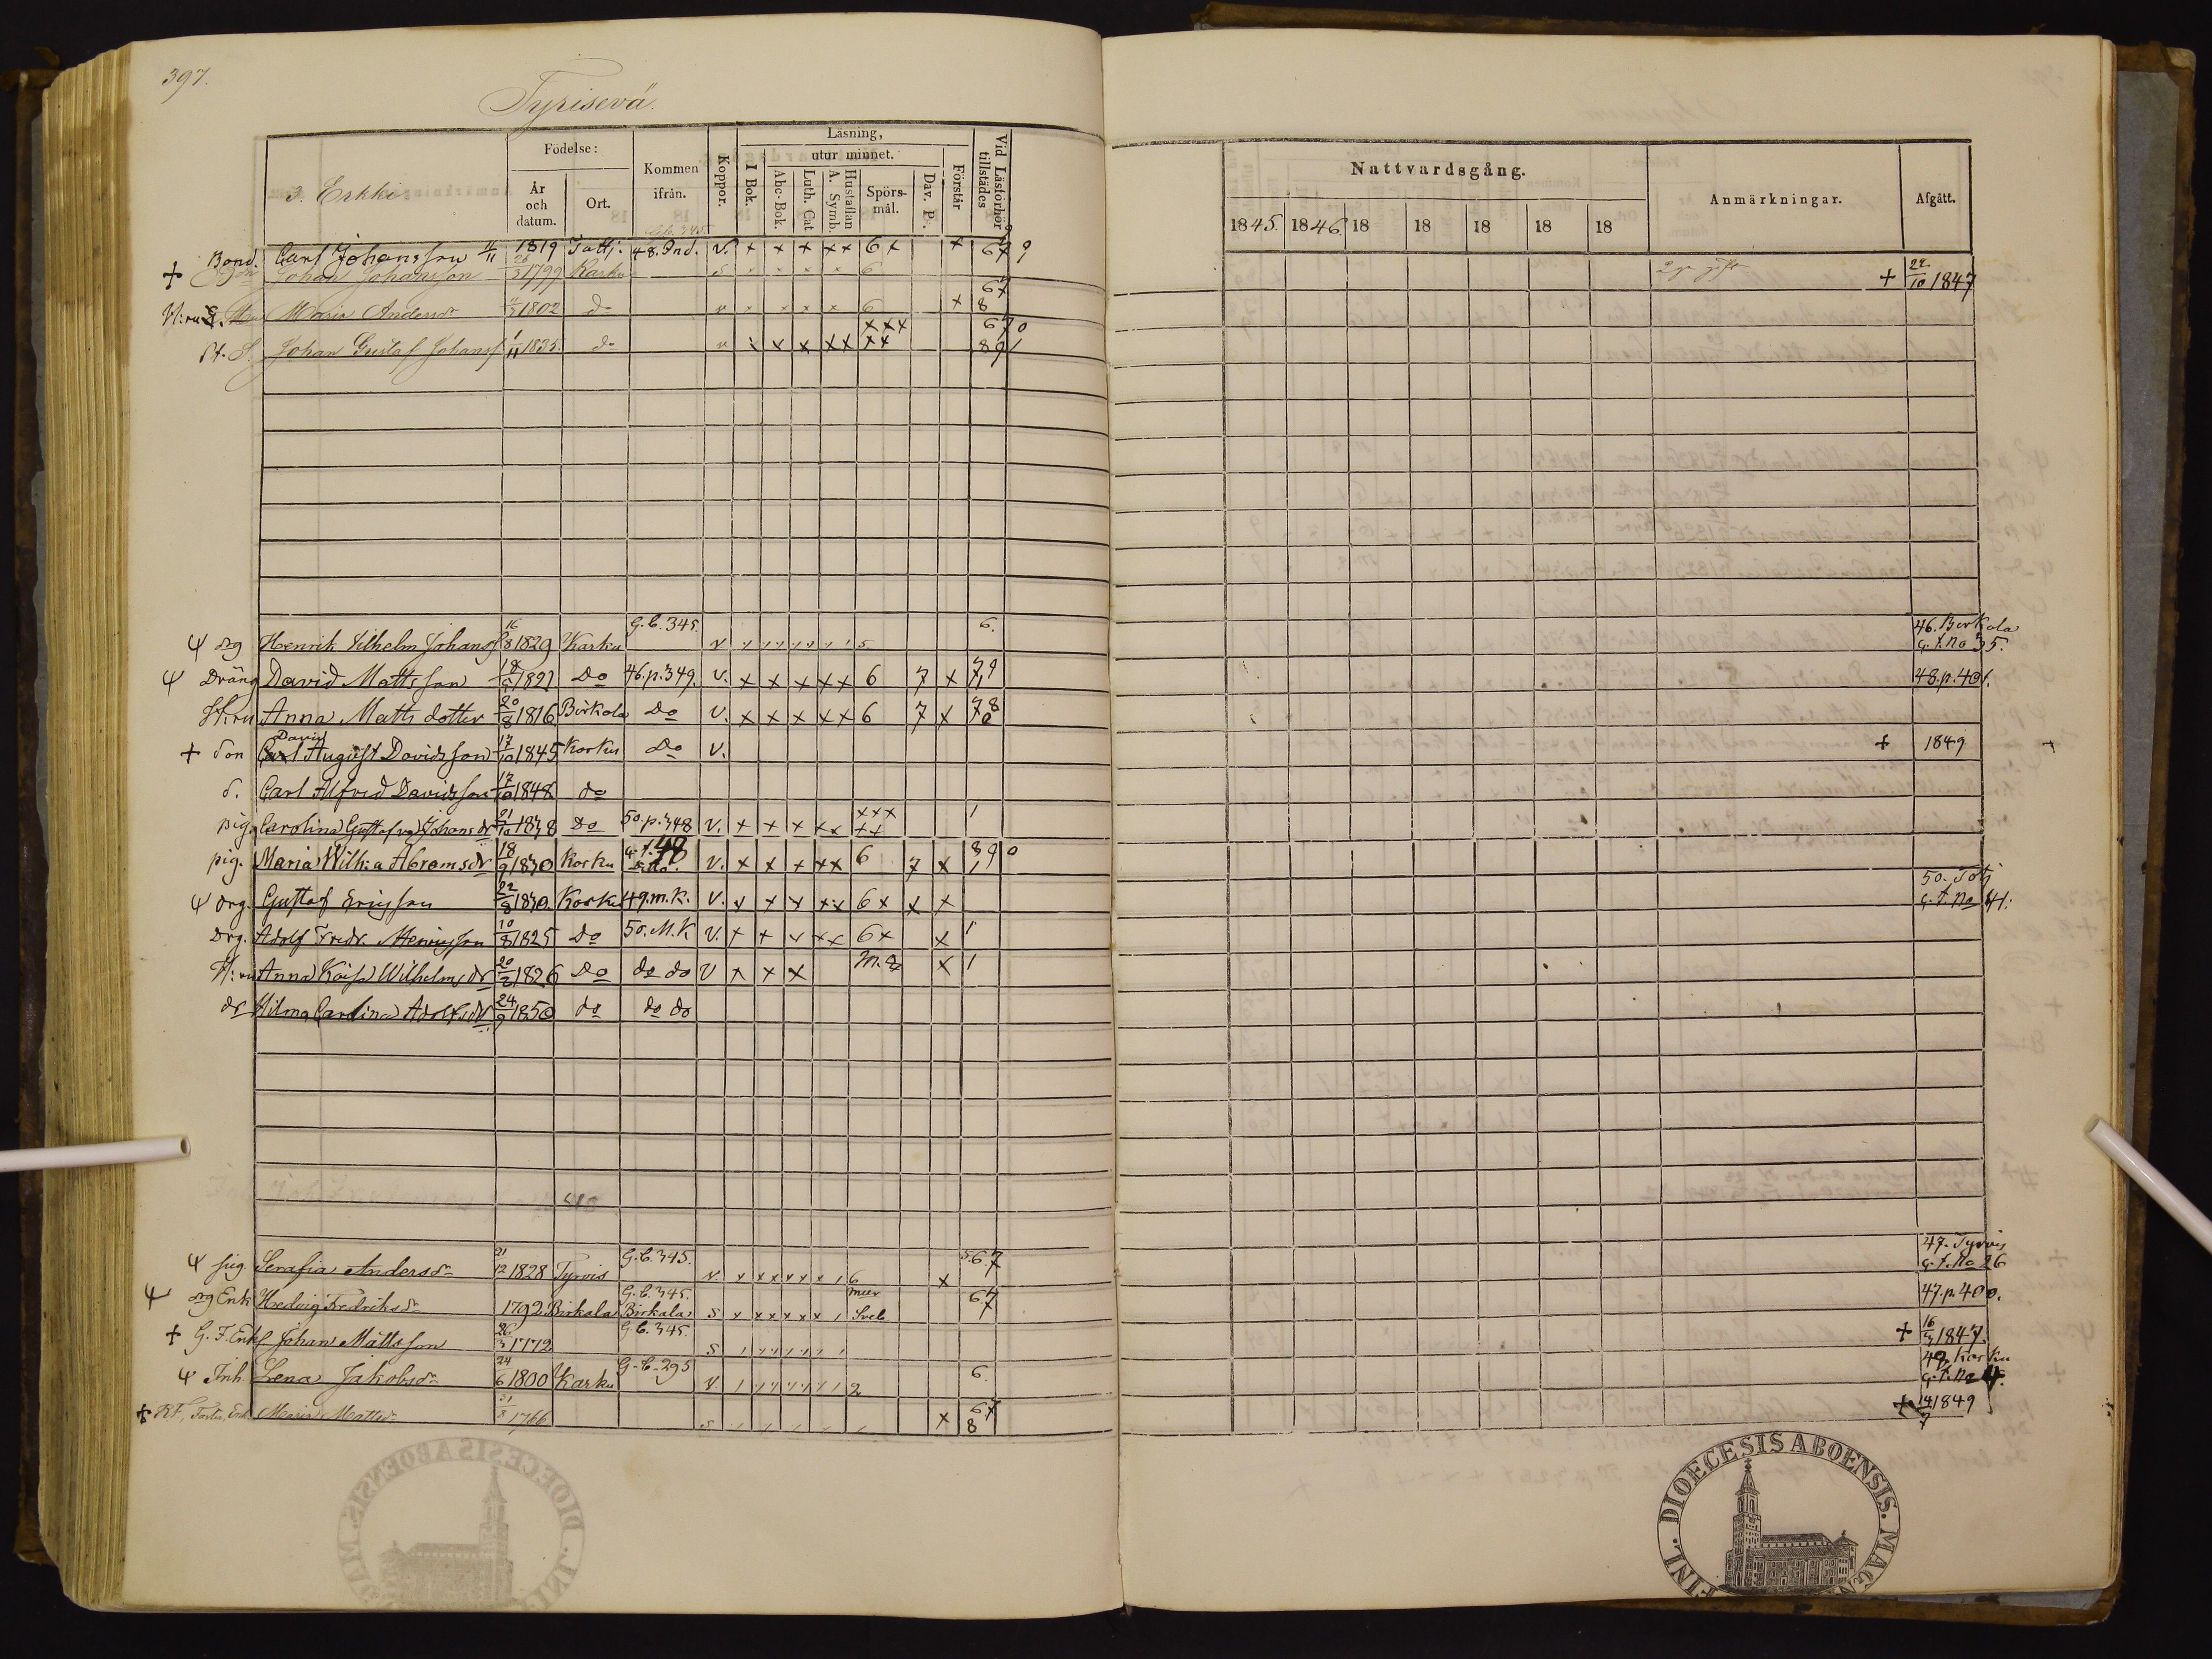 397.
Tyrisevä.
3. Erkki
Födelse:
År och datum.
Ort.
Kommen ifrån.
Koppor.
Läsning,
utur minnet.
I Bok.
Abc-Bok.
Luth. Cat
Hustaflan A. Symb.
Spörs-mål.
Dav. Ps.
Förstår
Vid Läsförhör tillstädes
Nattvardsgång.
1845. 1846. 18 18 18 18 18
Anmärkningar.
Afgått.
Bond. Carl Johansson 1819 48. Ind. v. x x x x x 6 x x 67 9
+ Johan Johansson 26/3 1799 Karku s 6 + 22/10 1847
Maria Andersdr 1802 do v 6 x 67 8
Johan Gustaf Johanss 1/11 1835. do v x x x x x xxx xx 670 891
ψ drg Henrik Vilhelm Johanss 16/8 1829 Karku G.C. 345. v 5 6. 46. Birkala G. f. no 35.
ψ Dräng David Mattsson 1821 Do 46. p. 349. v. x x x x x 6 7 x 48. p. 401.
H:ru Anna Matts dotter 20/8 1816 Birkala Do v. x x x x x 6 7 x 78
+ Son David Carl August Davidsson 17/10 1845 Karku Do v. + 1849
s. Carl Alfred Davidsson 17/10 1848 do
pig. Carolina Gustafva Johansdr 21/10 1838 Do 50. p. 348 v. x x x x x xxx xx 1
pig. Maria Wilh:a Abramsdr 18/9 1830 Karku 48 v. x x x x x 6 7 x 890
ψ drg. Gustaf Ericsson 22/8 1830. Karku 49. m. k. v. x x x x x 6 x x x 50. G. f. No 41.
drg. Adolf Fredr. Henricsson 10/8 1825 Do 50. M. K v. x x x x x 6 x x 1
H:ru Anna Kaisa Wilhelmsdr 20/2 1826 Do do do v x x x x 1
dr Hilma Carolina Adolfsdr 24/9 1850 do do do
ψ pig. Serafia Andersdr 21/12 1828 Tyrvis G.C. 345. v 6 x 567 47. Tyrvis G. f. No 26
ψ Enk Hedvig Fredriksdr 1792 Birkala G.C. 345. Birkala s Sveb 67 47. p. 400.
+ G. F. Enkl Johan Mattsson 26/3 1772 G.C. 345. s + 16/3 1847.
ψ Inh. Lena Jakobsdr 24/6 1800 Karku G.C. 295 v. 2 6. Karku G. f. No 4.
+ Maria Mattsdr 1766 s x 67 8 + 14/7 1849
DIOECESIS ABOENSIS. MAGN. FINL.